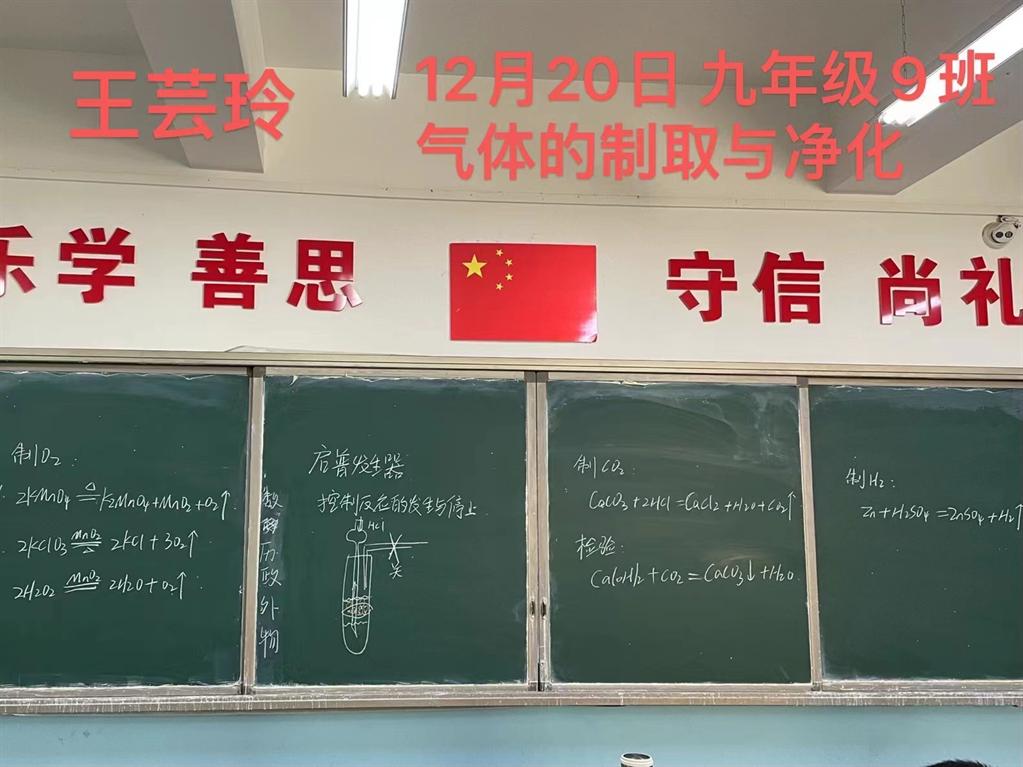 王芸玲
12月20日 九年级9班
气体的制取与净化
乐学 善思 守信 尚礼
制O₂:
2KMnO₄ ≜ K₂MnO₄+MnO₂+O₂↑
2KClO₃ MnO₂ △ 2KCl+3O₂↑
2H₂O₂ MnO₂ 2H₂O+O₂↑
数
历
政
外
物
启普发生器
控制反应的发生与停止
HCl
关
制CO₂
CaCO₃+2HCl=CaCl₂+H₂O+CO₂↑
检验:
Ca(OH)₂+CO₂=CaCO₃↓+H₂O
制H₂:
Zn+H₂SO₄=ZnSO₄+H₂↑